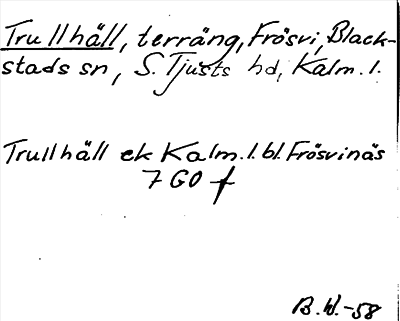 Trullhäll, terräng, Frösvi, Black-
stads sn, S. Tjusts hd, Kalm. l.
Trullhäll ek Kalm. l. bl. Frösvinäs
7 GO f
B.W.-58